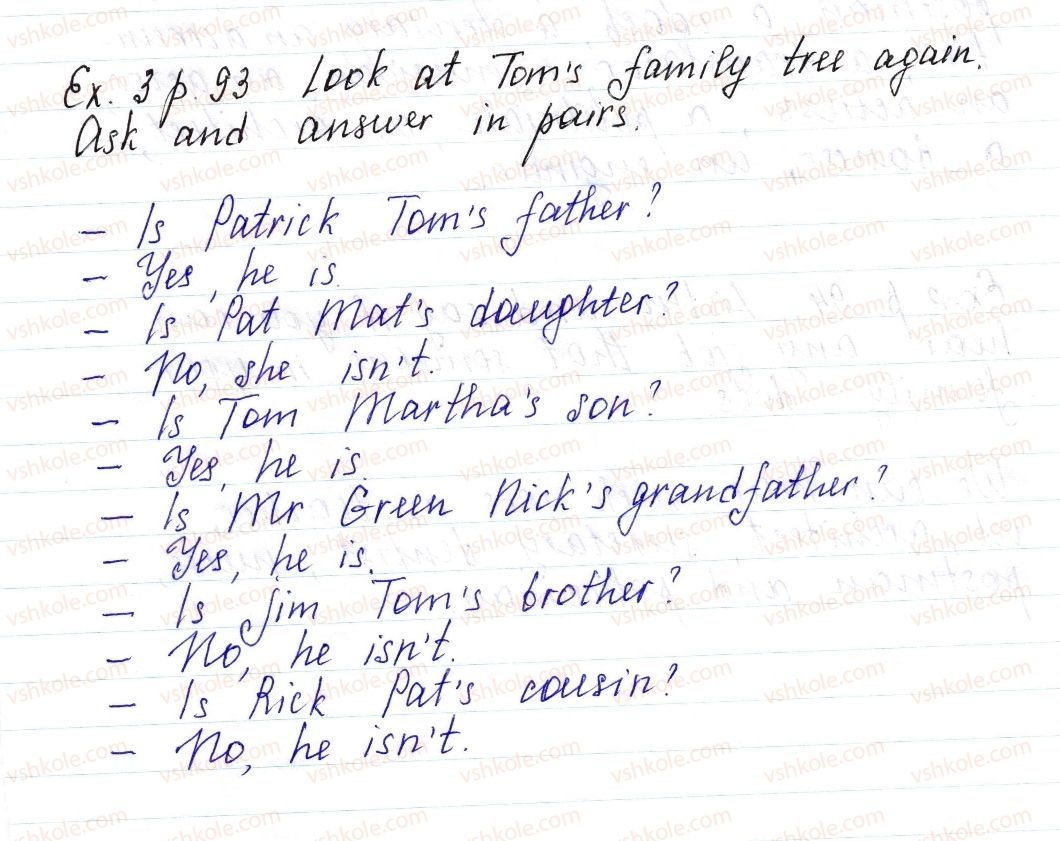 Ex. 3 p. 93 Look at Tom's family tree again.
Ask and answer in pairs.
– Is Patrick Tom's father?
– Yes, he is.
– Is Pat Mat's daughter?
– No, she isn't.
– Is Tom Martha's son?
– Yes, he is.
– Is Mr Green Nick's grandfather?
– Yes, he is.
– Is Jim Tom's brother?
– No, he isn't.
– Is Rick Pat's cousin?
– No, he isn't.
vshkole.com